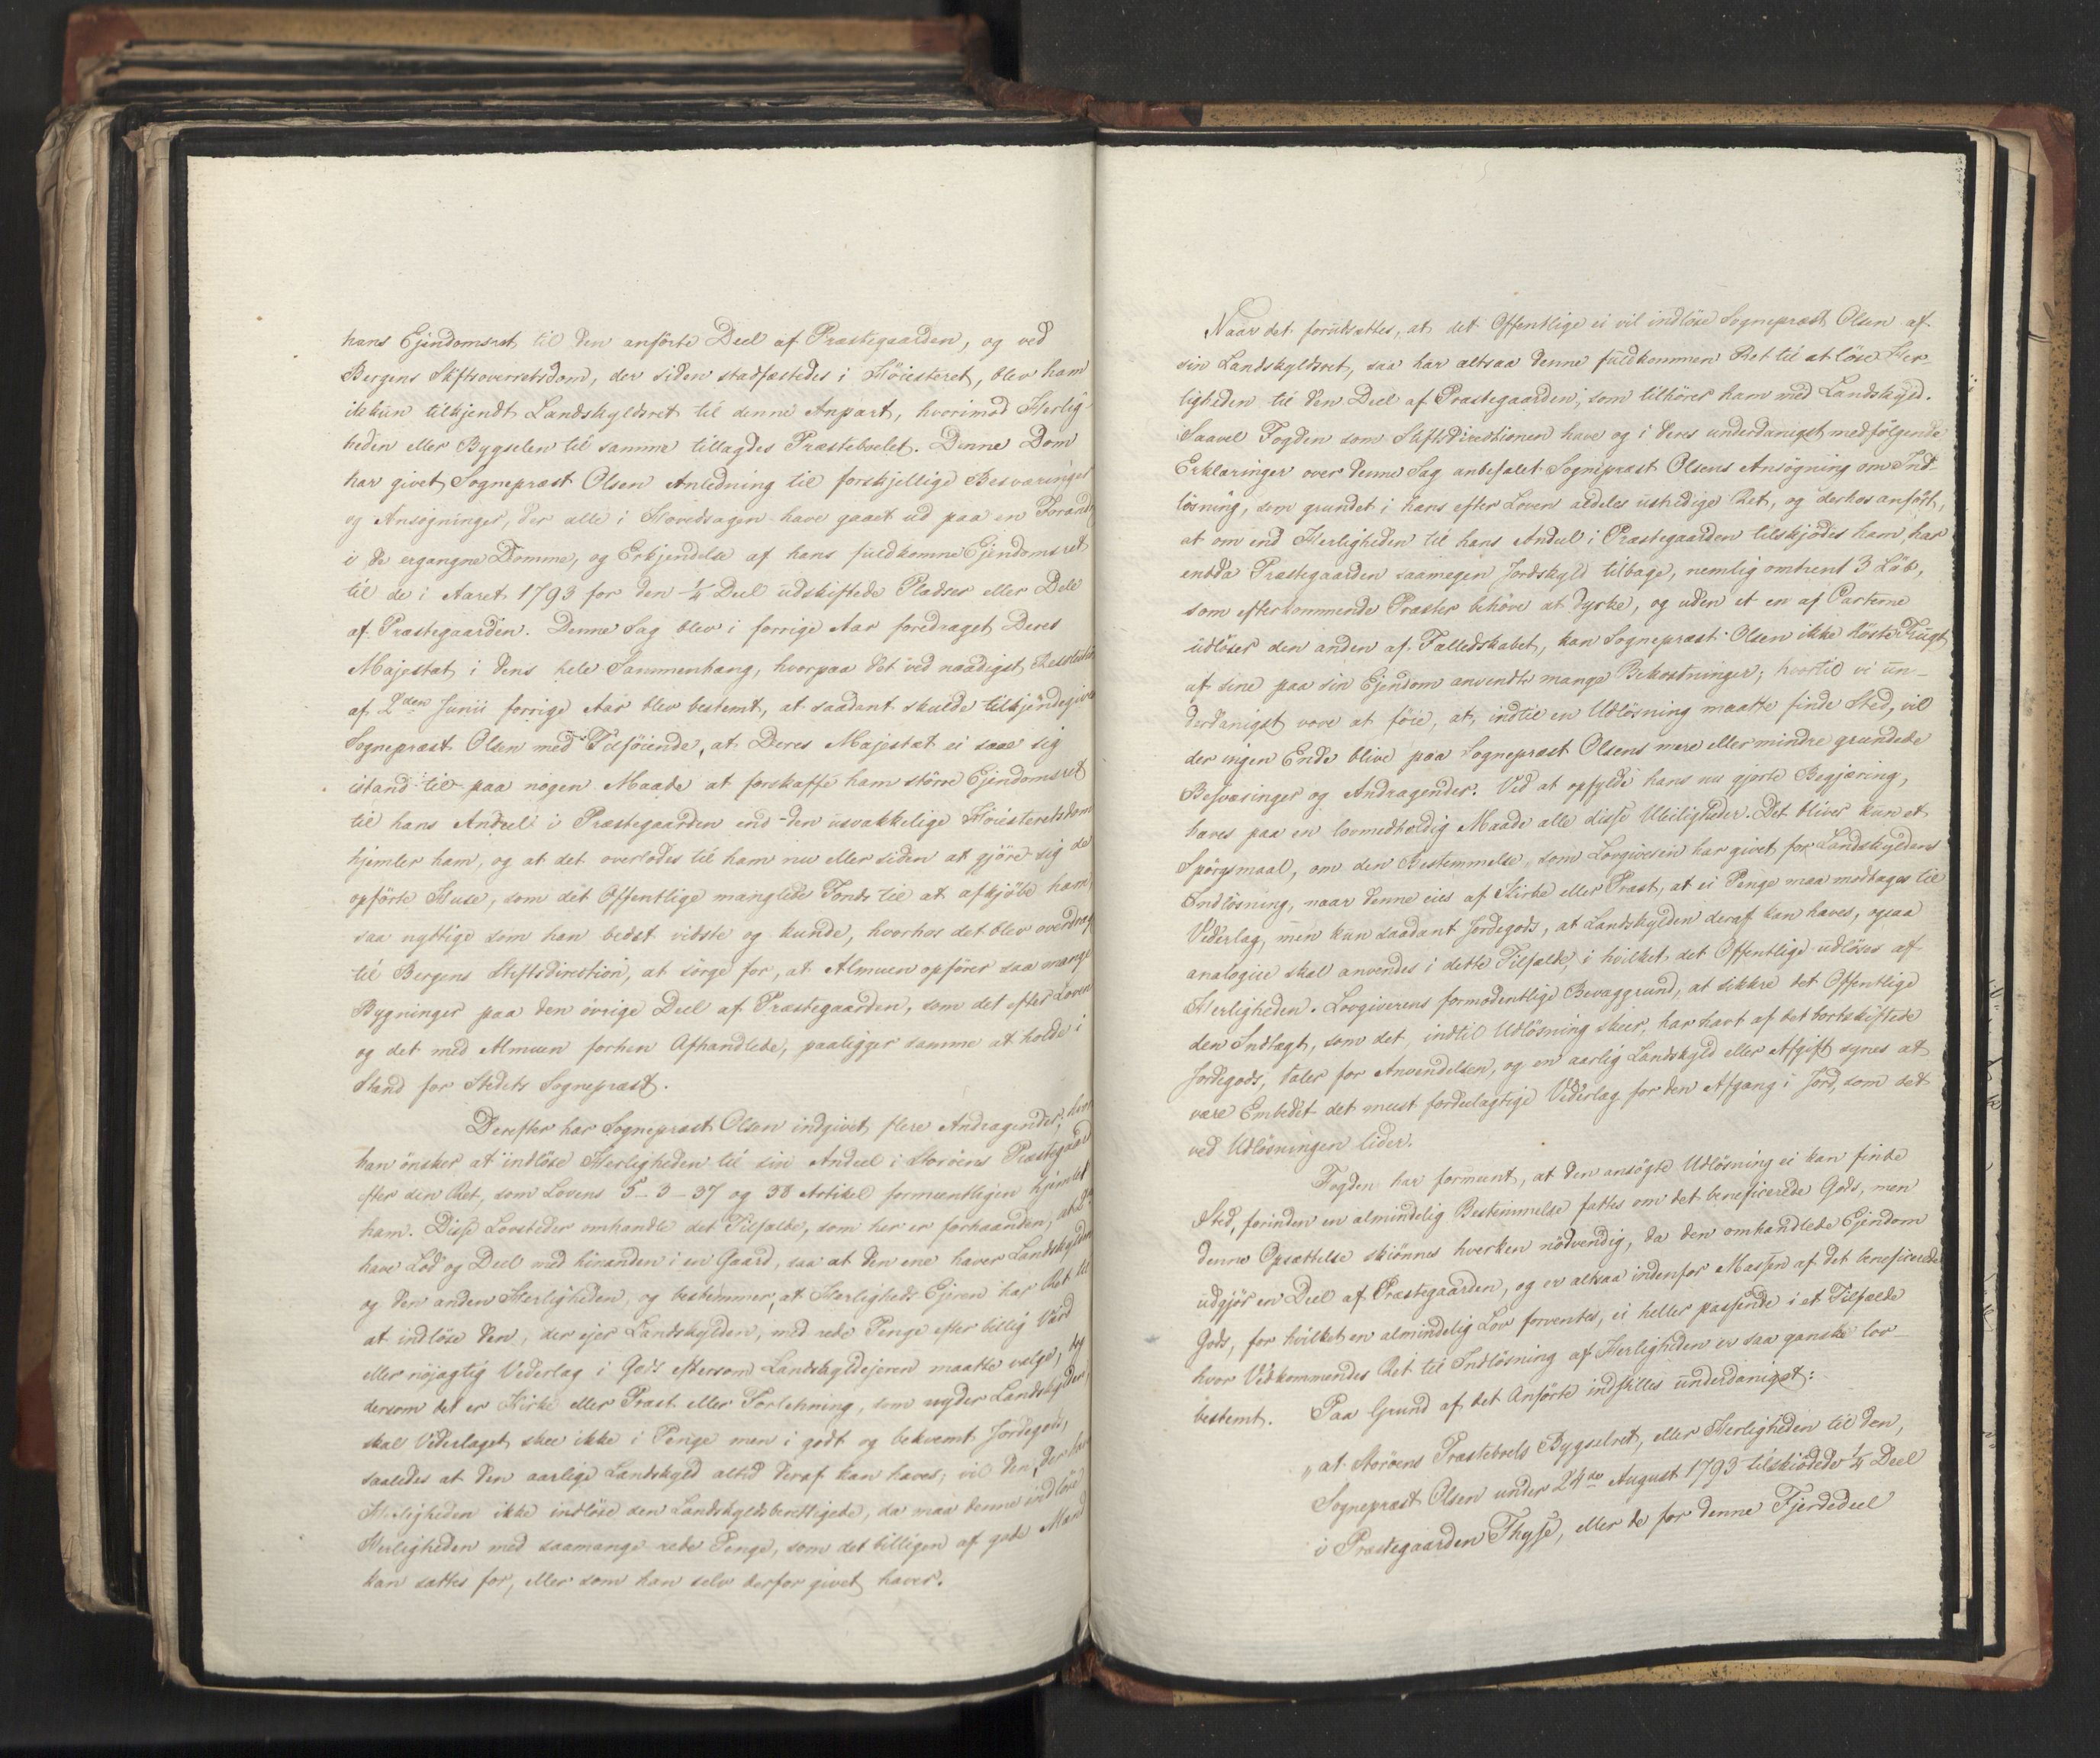 hans Ejendomsret til den anförte Deel af Præstegaarden, og ved
Bergens Stiftsoverretsdom, der siden stadfæstedes i Höiesteret, blev ham
ikkun tilkjendt Landskyldsret til denne Anpart, hvorimod Herlig-
heden eller Bygselen til samme tillagdes Præsteboelet. Denne Dom
har givet Sognepræst Olsen Anledning til forskjellige Besværinger
og Ansögninger, der alle i Hovedsagen have gaaet ud paa en Forandr
i de ergangne Domme, og Erkjendelse af hans fuldkomne Ejendomsret
til de i Aaret 1793 for den 1/4 Deel udskiftede Pladser eller Dele
af Præstegaarden. Denne Sag blev i forrige Aar foredraget Deres
Majestæt i dens hele Sammenhæng, hvorpaa det ved naadigst Resolution
af 2den Junii forrige Aar blev bestemt, at saadant skulde tilkjendegives
Sognepræst Olsen med Tilföiende, at Deres Majestæt ei saae sig
istand til paa nogen Maade at forskaffe ham större Ejendomsret
til hans Andeel i Præstegaarden end den usvækkelige Höiesteretsdom
hjemler ham, og at det overlodes til ham nu eller siden at gjöre sig de
opförte Huse, som det Offentlige manglede Fonds til at afkjöbe ham,
saa nyttige som han bedst vidste og kunde, hvorhos det blev overdraget
til Bergens Stiftsdirection, at sörge for, at Almuen opförer saa mange
Bygninger paa den övrige Deel af Præstegaarden, som det efter Loven
og det med Almuen forhen Afhandlede, paaligger samme at holde i
Stand for Stedets Sognepræst.
Derefter har Sognepræst Olsen indgivet flere Andragender,
han önsker at indlöse Herligheden til sin Andeel i Storöens Præstegaard
efter den Ret, som Lovens 5-3-37 og 38 Artikel formeentligen hjemlet
ham. Disse Lovsteder omhandle det Tilfælde, som her er forhaanden, at 2de
have Lod og Deel med hinanden i en Gaard, saa at den ene haver Landskylden
og den anden Herligheden, og bestemmer, at Herligheds Ejeren har Ret til
at indlöse den, der ejer Landskylden, med rede Penge efter billig Værd
eller nöjagtig Vederlag i Gods eftersom Landskyldejeren maatte vælge,
dersom det er Kirke eller Præst eller Forlehning, som nyder Landskylden,
skal Vederlaget skee ikke i Penge men i godt og bekvemt Jordegods,
saaledes at den aarlige Landskyld altid deraf kan haves; vil den, der har
Herligheden ikke indlöse den Landskyldsberettigede, da maa denne indlöse
Herligheden med saamange rede Penge, som det billigen af gode Mænd
kan sættes for, eller som han selv derfor givet haver.
Naar det forudsættes, at det Offentlige ei vil indlöse Sognepræst Olsen af
sin Landskyldsret, saa har altsaa denne fuldkommen Ret til at löse Her-
ligheden til den Deel af Præstegaarden, som tilhörer ham med Landskyld.
Saavel Fogden som Stiftsdirectionen have og i deres underdanigst medfölgende
Erklæringer over denne Sag anbefalet Sognepræst Olsens Ansögning om Ind-
lösning, som grundet i hans efter Loven aldeles ustridige Ret, og derhos anfört,
at om end Herligheden til hans Andeel i Præstegaarden tilskjödes ham, har
endda Præstegaarden saamegen Jordskyld tilbage, nemlig omtrent 3 Löb,
som efterkommende Præster behöve at dyrke, og uden at en af Parterne
udlöser den anden af Fælledskabet, kan Sognepræst Olsen ikke höste Frugt
af sine paa sin Ejendom anvendte mange Bekostninger; hvortil vi un-
derdanigst vove at föie, at, indtil en Udlösning maatte finde Sted, vil
der ingen Ende blive paa Sognepræst Olsens mere eller mindre grundede
Besværinger og Andragender. Ved at opfylde hans nu gjorte Begjæring,
hæves paa en lovmedholdig Maade alle disse Uleiligheder. Det bliver kun et
Spörgsmaal, om den Bestemmelse, som Lovgiveren har givet for Landskyldens
Indlösning, naar denne eies af Kirke eller Præst, at ei Penge maa modtages til
Vederlag, men kun saadant Jordegods, at Landskylden deraf kan haves, ogsaa
analogice skal anvendes i dette Tilfælde, i hvilket det Offentlige udlöses af
Herligheden. Lovgiverens formodentlige Bevæggrund, at sikkre det Offentlige
den Indtægt, som det, indtil Udlösning skeer, har havt af det bortskiftede
Jordegods, taler for Anvendelsen, og en aarlig Landskyld eller Afgift synes at
være Embedet det meest fordeelagtige Vederlag for den Afgang i Jord, som det
ved Udlösningen lider.
Fogden har formeent, at den ansögte Udlösning ei kan finde
Sted, forinden en almindelig Bestemmelse fattes om det beneficerede Gods, men
denne Opsættelse skiönnes hverken nödvendig, da den omhandlede Ejendom
udgjör en Deel af Præstegaarden, og er altsaa indenfor Massen af det beneficerede
Gods, for hvilket en almindelig Lov forventes, ei heller passende i et Tilfælde
hvor Vedkommendes Ret til Indlösning af Herligheden er saa ganske lov-
bestemt. Paa Grund af det Anförte indstilles underdanigst:
„at Storöens Præsteboels Bygselret, eller Herligheden til den,
Sognepræst Olsen under 24de August 1793 tilskiödede 1/4 Deel
i Præstegaarden Thysse, eller de for denne Fjerdedeel